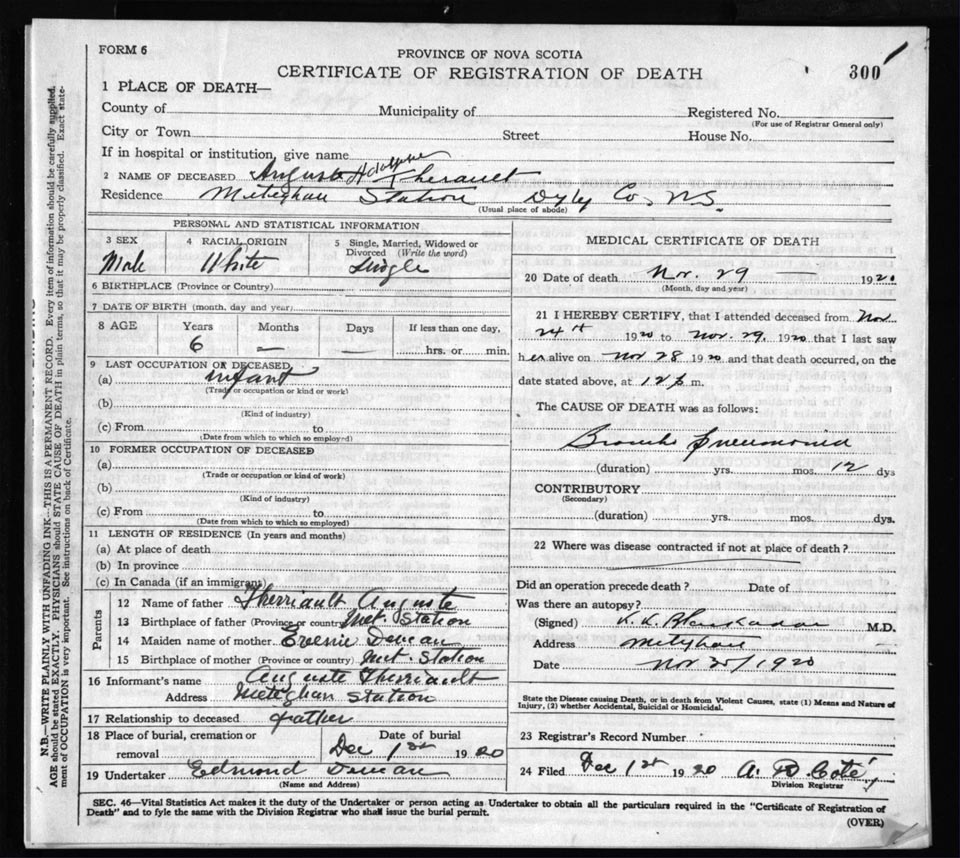 FORM 6
PROVINCE OF NOVA SCOTIA
CERTIFICATE OF REGISTRATION OF DEATH
300
1 PLACE OF DEATH—
County of Municipality of Registered No.
(For use of Registrar General only)
City or Town Street House No.
If in hospital or institution, give name
2 NAME OF DECEASED Auguste Adolphe Therault
Residence Meteghan Station Digby Co, N.S.
(Usual place of abode)
PERSONAL AND STATISTICAL INFORMATION
3 SEX 4 RACIAL ORIGIN 5 Single, Married, Widowed or Divorced (Write the word)
Male White Single
6 BIRTHPLACE (Province or Country)
7 DATE OF BIRTH (month, day and year)
8 AGE Years Months Days If less than one day,
6 — — hrs. or min.
9 LAST OCCUPATION OF DECEASED
(a) infant
(Trade or occupation or kind or work)
(b)
(Kind of industry)
(c) From to
(Date from which to which so employed)
10 FORMER OCCUPATION OF DECEASED
(a)
(Trade or occupation or kind of work)
(b)
(Kind of industry)
(c) From to
(Date from which to which so employed)
11 LENGTH OF RESIDENCE (In years and months)
(a) At place of death
(b) In province
(c) In Canada (if an immigrant)
Parents
12 Name of father Therriault Auguste
13 Birthplace of father (Province or country) Met. Station
14 Maiden name of mother Deveau
15 Birthplace of mother (Province or country) Met. Station
16 Informant's name Auguste Therriault
Address Meteghan Station
17 Relationship to deceased father
18 Place of burial, cremation or removal Date of burial
Dec 1st 1920
19 Undertaker Edmond Deveau
(Name and Address)
MEDICAL CERTIFICATE OF DEATH
20 Date of death Nov. 29 1920
(Month, day and year)
21 I HEREBY CERTIFY, that I attended deceased from Nov.
24th 1920 to Nov. 29, 1920 that I last saw
h alive on Nov 28 1920 and that death occurred, on the
date stated above, at 12 p m.
The CAUSE OF DEATH was as follows:
Broncho Pneumonia
(duration) yrs. mos. 12 dys
CONTRIBUTORY
(Secondary)
(duration) yrs. mos. dys.
22 Where was disease contracted if not at place of death?
Did an operation precede death? Date of
Was there an autopsy?
(Signed) M.D.
Address Meteghan
Date Nov 1920
State the Disease causing Death, or in death from Violent Causes, state (1) Means and Nature of
Injury, (2) whether Accidental, Suicidal or Homicidal.
23 Registrar's Record Number
24 Filed Dec 1st 1920 A. D. Coté
Division Registrar
SEC. 46—Vital Statistics Act makes it the duty of the Undertaker or person acting as Undertaker to obtain all the particulars required in the "Certificate of Registration of
Death" and to fyle the same with the Division Registrar who shall issue the burial permit.
(OVER)
N.B.—WRITE PLAINLY WITH UNFADING INK—THIS IS A PERMANENT RECORD. Every item of information should be carefully supplied.
AGE should be stated EXACTLY. PHYSICIANS should STATE CAUSE OF DEATH in plain terms, so that it may be properly classified. Exact state-
ment of OCCUPATION is very important. See instructions on back of Certificate.